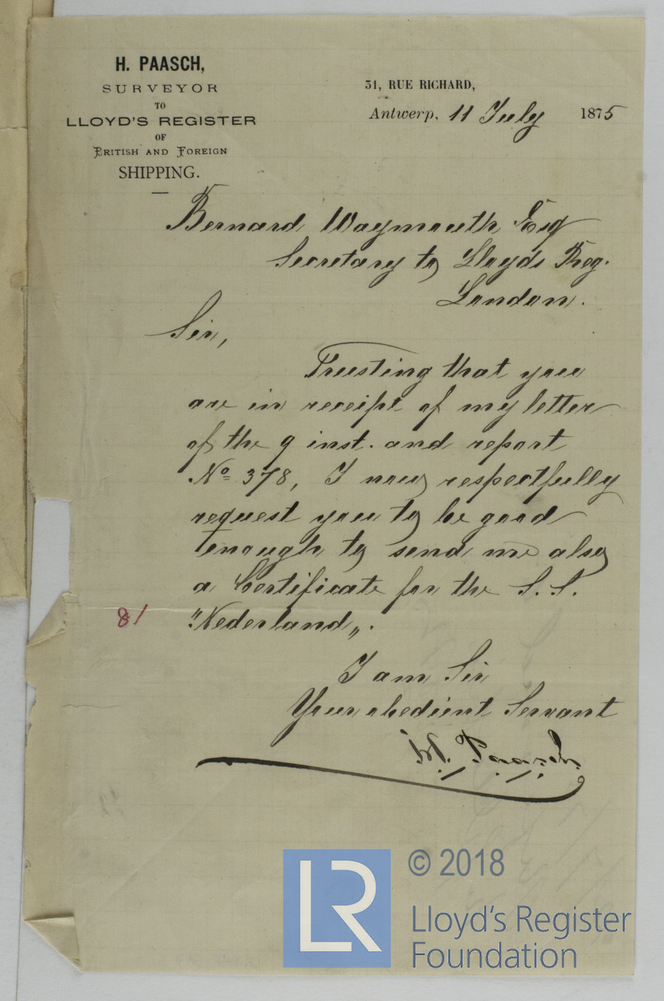 H. PAASCH,
SURVEYOR
TO
LLOYD'S REGISTER
OF
BRITISH AND FOREIGN
SHIPPING.
31, RUE RICHARD,
Antwerp, 11 July 1875
Bernard Waymouth Esq
Secretary to Lloyds Reg.
London.
Sir,
Trusting that you
are in receipt of my letter
of the 9 inst. and report
No 378, I now respectfully
request you to be good
enough to send me also
a Certificate for the S.S.
"Nederland„.
81
I am Sir
Your obedient Servant
H. Paasch
LR
© 2018
Lloyd's Register
Foundation